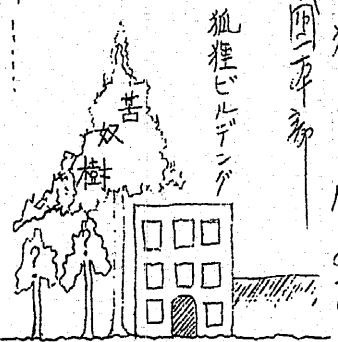 團本部
狐狸ビルデング
苦奴樹
?
?